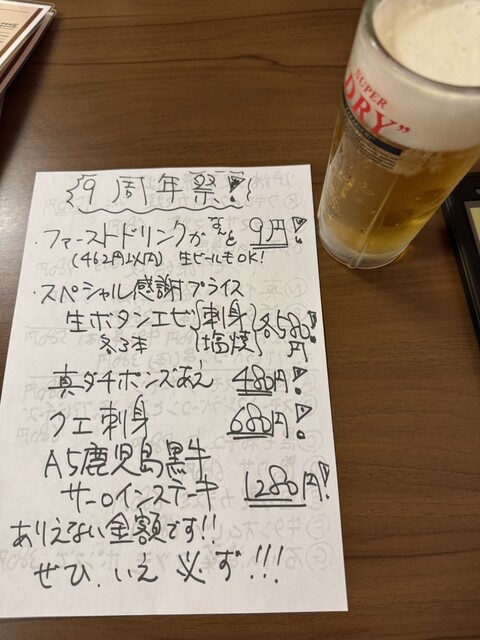 9周年祭!
・ファーストドリンクがなんと 9円!
(462円以内) 生ビールもOK!
・スペシャル感謝プライス
生ボタンエビ 刺身 各580円!
各3本 塩焼
真ダチポンズあえ 480円!
クエ刺身 680円!
A5鹿児島黒牛
サーロインステーキ 1280円!
ありえない金額です!!
ぜひ、いえ 必ず!!!
SUPER
"DRY"